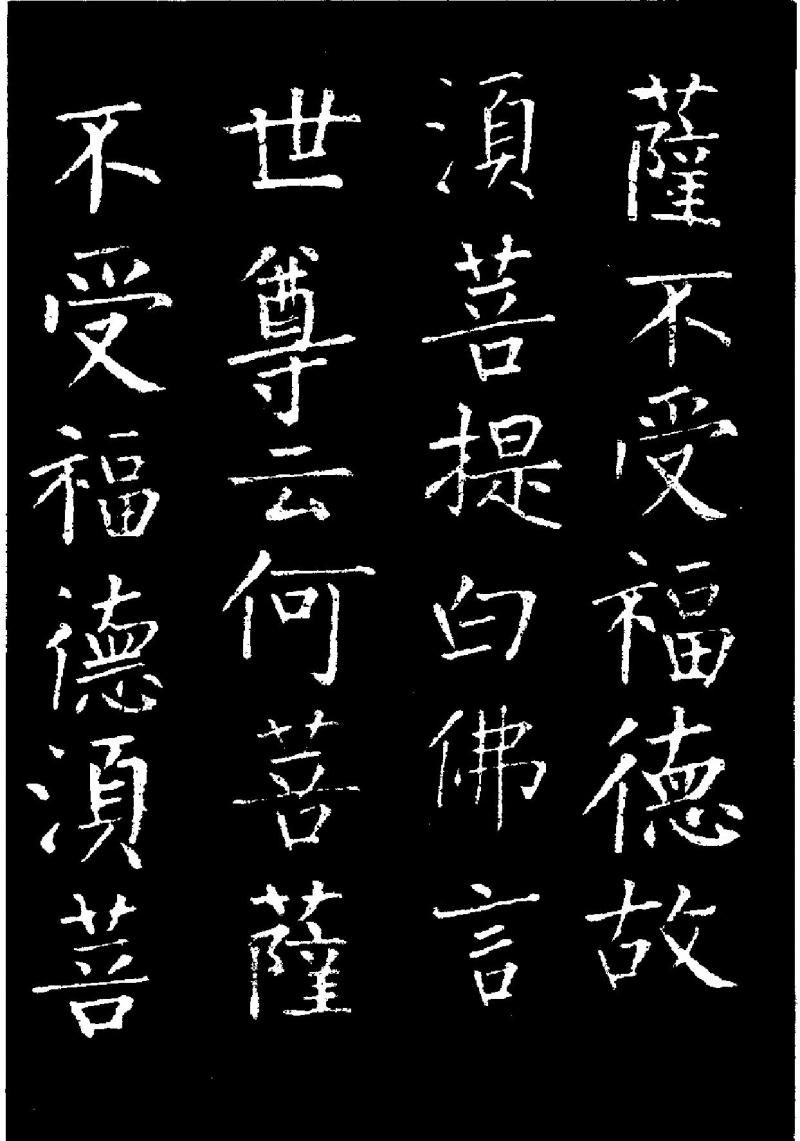 薩不受福德故
湏菩提白佛言
世尊云何菩薩
不受福德湏菩